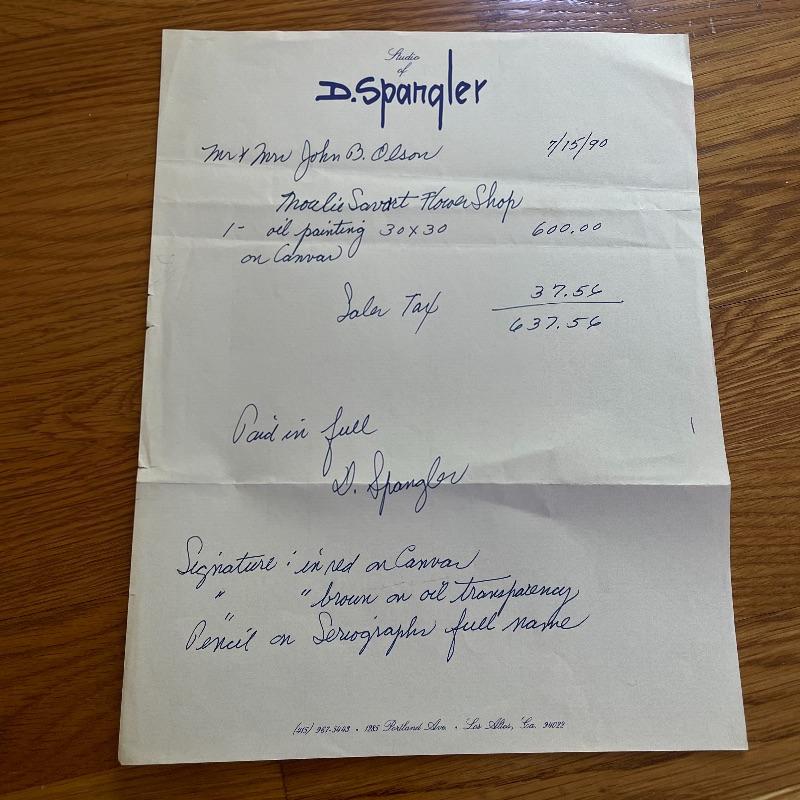 Studio
of
D. Spangler
Mr & Mrs John B. Olson 7/15/90
Flower Shop
1- oil painting 30x30 600.00
on Canvas
Sales Tax 37.56
637.56
Paid in full
D. Spangler
Signature : in red on Canvas
" " brown on oil transparency
"
Pencil on Seriographs full name
(415) 967-5443 • 1285 Portland Ave. • Los Altos, Ca. 94022